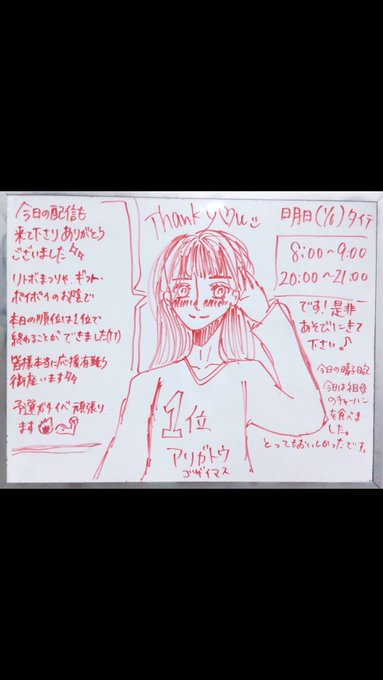 今日の配信も
来て下さりありがとう
ございました
リトボまつりや、ギフト・
ポイポイのお陰で
本日の順位は1位で
終わることができました(1T)
皆様本当に応援有難う
御座います
予選ガチイベ頑張り
ます
Thank y♡u
明日(1/6)タイテ
8:00〜9:00
20:00〜21:00
です!是非
あそびにきて
下さい♪
今日の晴子日記
今日は祖母
のチャーハン
を食べま
した。
とってもおいしかったです。
1位
アリガトウ
ゴザイマス